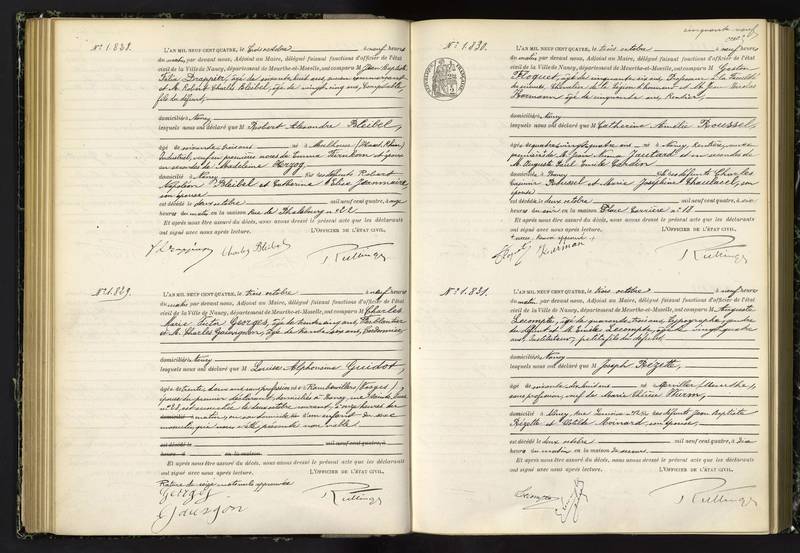 N° 1.828.
L'AN MIL NEUF CENT QUATRE, le trois octobre à neuf heures
du matin, par devant nous, Adjoint au Maire, délégué faisant fonctions d'officier de l'état
civil de la Ville de Nancy, département de Meurthe-et-Moselle, ont comparu M Jean Baptiste
Félix Drappier, âgé de soixante huit ans,
et M. Robert Charles Bleibel, âgé de vingt cinq ans, Comptable,
fils du défunt,
domiciliés à Nancy
lesquels nous ont déclaré que M Robert Alexandre Bleibel,
âgé de soixante six ans né à Mulhouse (Haut Rhin)
Industriel, veuf en premières noces de Emma et époux
en secondes de Madeleine Herzog
domicilié à Nancy fils des défunts Robert
Napoléon Bleibel et Catherine Elise Jeanmaire,
son épouse
est décédé le deux octobre mil neuf cent quatre, à onze
heures du matin en la maison Rue de Phalsbourg n° 22
Et après nous être assuré du décès, nous avons dressé le présent acte que les déclarants
ont signé avec nous après lecture. L'OFFICIER DE L'ÉTAT CIVIL,
Charles Bleibel
N° 1.829.
L'AN MIL NEUF CENT QUATRE, le trois octobre à neuf heures
du matin, par devant nous, Adjoint au Maire, délégué faisant fonctions d'officier de l'état
civil de la Ville de Nancy, département de Meurthe-et-Moselle, ont comparu M Charles
Marie Victor Georges, âgé de trente cinq ans, Ferblantier
et M. Charles âgé de trente ans,
domiciliés à Nancy
lesquels nous ont déclaré que M Louise Alphonsine Guidot,
âgée de trente deux ans sans profession née à Rambervillers (Vosges),
épouse du premier déclarant, domiciliée à Nancy, rue
n° 28, est accouchée le deux octobre courant, à onze heures du
matin, en son domicile d'un enfant du sexe
masculin qui nous a été présenté non viable
est décédé le mil neuf cent quatre, à
heures d en la maison
Et après nous être assuré du décès, nous avons dressé le présent acte que les déclarants
ont signé avec nous après lecture. L'OFFICIER DE L'ÉTAT CIVIL,
Rature de seize mots nuls approuvée
Georges
cinquante neuf
N° 1.830.
L'AN MIL NEUF CENT QUATRE, le trois octobre à neuf heures
du matin, par devant nous, Adjoint au Maire, délégué faisant fonctions d'officier de l'état
civil de la Ville de Nancy, département de Meurthe-et-Moselle, ont comparu M Gaston
Floquet, âgé de cinquante six ans, Professeur à la Faculté
des sciences, Chevalier de la Légion d'honneur et M. Jean Nicolas
âgé de cinquante ans, Rentier,
domiciliés à Nancy
lesquels nous ont déclaré que M Catherine Amélie Roussel,
âgée de quatre vingt quatre ans née à Nancy, Rentière, veuve en
premières de et en secondes de
M. Auguste Paul Emile
domiciliée à Nancy fille des défunts Charles
Casimir Roussel et Marie Joséphine son
épouse
est décédée le deux octobre mil neuf cent quatre, à six
heures du soir en la maison Place Carrière n° 18
Et après nous être assuré du décès, nous avons dressé le présent acte que les déclarants
ont signé avec nous après lecture. L'OFFICIER DE L'ÉTAT CIVIL,
N° 1.831.
L'AN MIL NEUF CENT QUATRE, le trois octobre à neuf heures
du matin, par devant nous, Adjoint au Maire, délégué faisant fonctions d'officier de l'état
civil de la Ville de Nancy, département de Meurthe-et-Moselle, ont comparu M Auguste
Lecompte, âgé de quarante trois ans, Typographe, gendre
du défunt et M. Lecompte, âgé de vingt quatre
ans, Instituteur, petit fils du défunt
domiciliés à Nancy
lesquels nous ont déclaré que M Joseph Bézette,
âgé de soixante dix huit ans né à (Meurthe),
sans profession, veuf de Marie Thérèse Wurm,
domicilié à Nancy, fils des défunts Jean Baptiste
Bézette et Clotilde son épouse,
est décédé le deux octobre mil neuf cent quatre, à dix
heures du matin en la maison de secours.
Et après nous être assuré du décès, nous avons dressé le présent acte que les déclarants
ont signé avec nous après lecture. L'OFFICIER DE L'ÉTAT CIVIL,